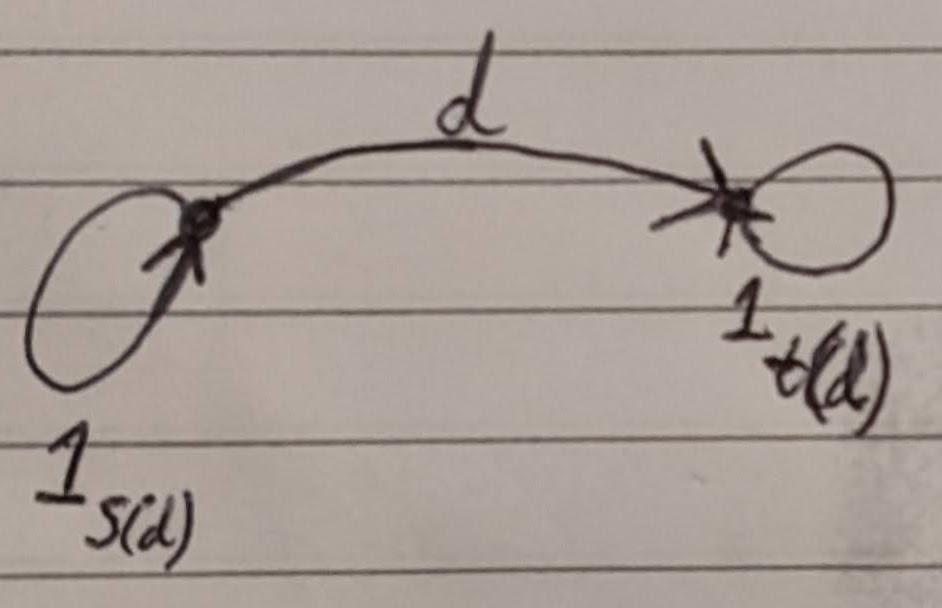 d
1 t(d)
1 s(d)